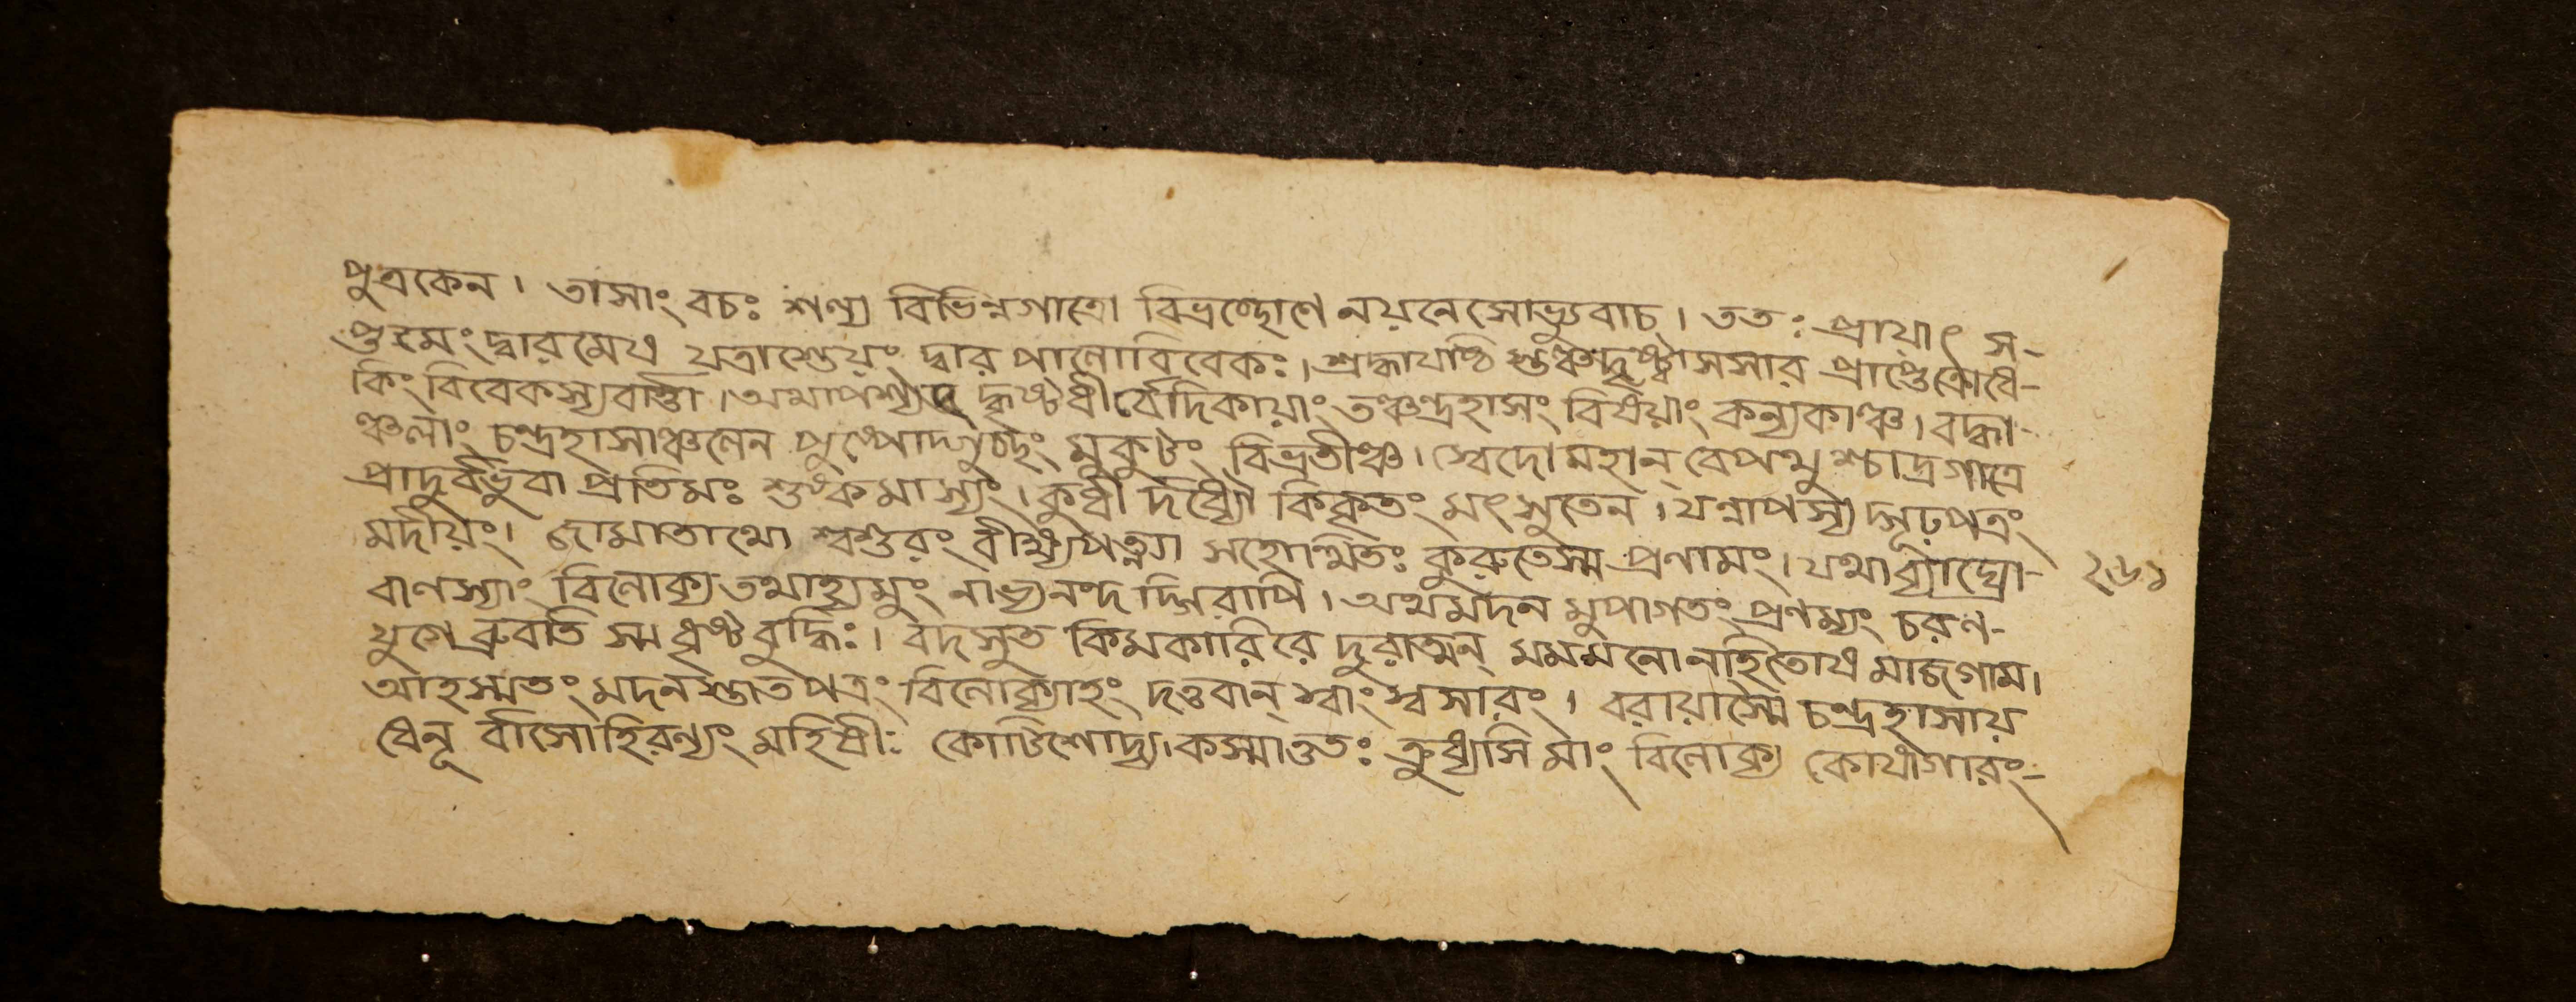 পুত্রকেন। তাসাং বচঃ শণ্য বিভিন্নগাত্রো বিভ্রচ্ছোণে নয়নেসোভ্যুবাচ। ততঃ প্রায়াৎ স-
প্তমং দ্বারমেষ যত্রাস্তেয়ং দ্বারপালোবিবেকঃ। শ্রদ্ধাযষ্টি দৃষ্ট্বাসসার প্রাপ্তেক্রোধে-
কিং বিবেকস্যবার্ত্তা। অথাপশ্য দ্ধৃষ্টধীর্বেদিকায়াং তঞ্চন্দ্রহাসং বিষয়াং কন্যকাঞ্চ। বদ্ধা-
ঞ্চলাং চন্দ্রহাসাঞ্চলেন মুকুটং বিভ্রতীঞ্চ। স্বেদোমহান্ বেপথুশ্চাদ্রগাত্রে
প্রাদুর্বভুবা প্রতিমঃ শুষ্কমাস্যং। কুধী র্দধ্যৌ কিংকৃতং মৎসুতেন। যন্নাপস্য দ্গূঢ়পত্রং
মদীয়ং। জামাতাথো শ্বশুরং বীক্ষ্যপত্ন্যা সহোত্থিতঃ কুরুতেস্ম প্রণামং। যথাব্যাঘ্রো-
বাণস্যাং বিলোক্য তথাহ্যমুং নাভ্যনংদ দ্গিরাপি। অথমদন মুপাগতং প্রণম্যং চরণ-
যুগে ব্রুবতি স্ম ধৃষ্টবুদ্ধিঃ। বদসুত কিমকারিরে দুরাত্মন্ মমমনো নহিতোষ মাজগাম।
আহস্মতং মদনস্তাতপত্রং বিলোক্যাহং দত্তবান্ স্বাং স্বসারং। বরায়াস্মৈ চন্দ্রহাসায়
ধেনূ র্বাসোহিরণ্যং মহিষীঃ কোটিশোদ্য। কস্মাত্ততঃ ক্রুধ্যসি মাং বিলোক্য কোষাগারং-
২৬১